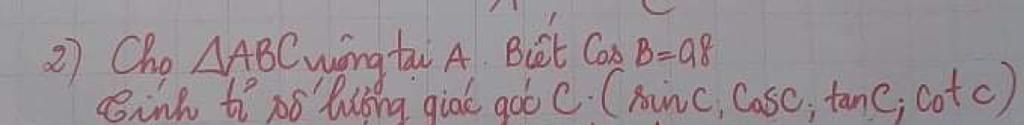 2) Cho ΔABC vuông tại A. Biết Cos B = 0,8
Tính tỉ số lượng giác góc C. (sin C, Cos C; tan C; Cot C)